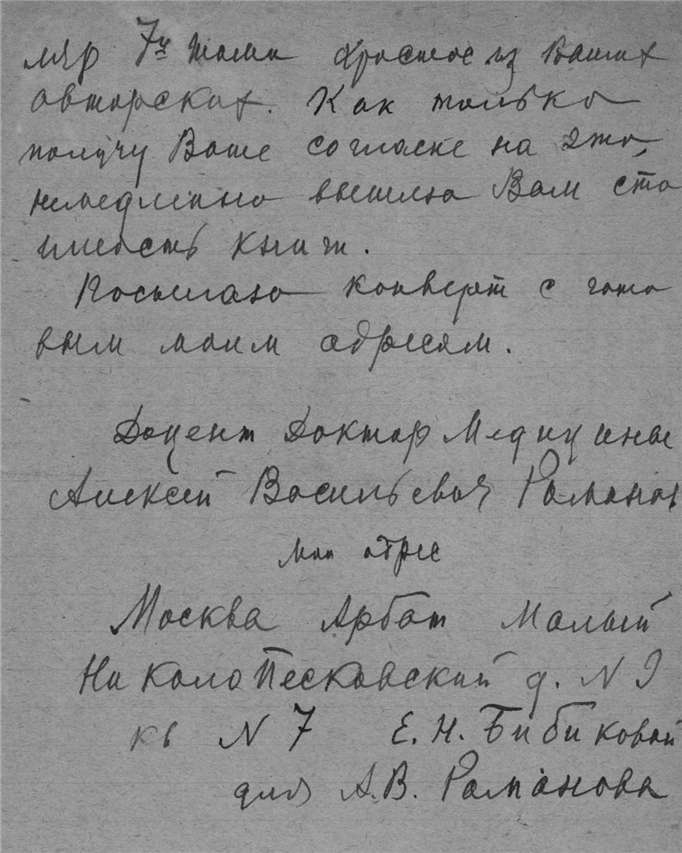 ляр 7й тома хотя из Ваших
авторских. Как только
получу Ваше согласие на это,
немедленно вышлю Вам сто
имость книги.
Посылаю конверт с гото
вым моим адресом.
Доцент Доктор Медицины
Алексей Васильевич Романов
мой адрес
Москва Арбат Малый
НиколоПесковский д. N 9
кв N 7 Е.Н. Бибиковой
для А.В. Романова